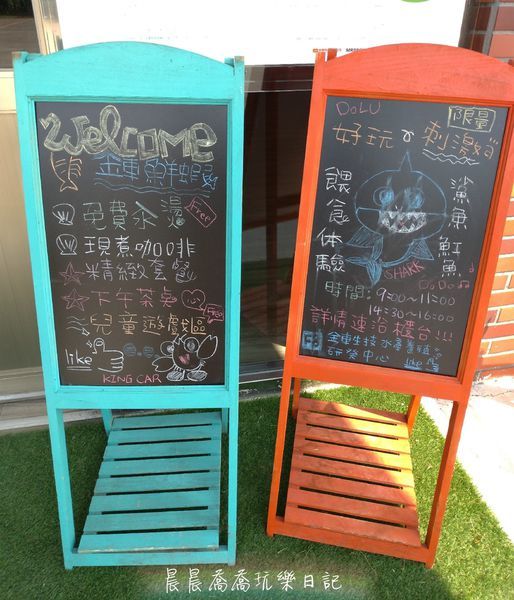 welcome
金車鮮蝦
免費冰淇
Free
現煮咖啡
精緻套餐
下午茶點
兒童遊戲區
like
KING CAR
DoLU
限量
好玩 刺激
餵食體驗
鯊魚
魟魚
SHARK
DoDo
時間：9:00~11:00
14:30~16:00
詳情速洽櫃台!!!
金車生技水產養殖
研發中心
like
晨晨喬喬玩樂日記